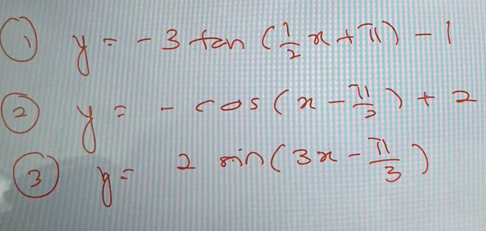 ① y = - 3 tan (1/2 x + π) - 1
② y = - cos (x - π/3) + 2
③ y = 2 sin (3x - π/3)